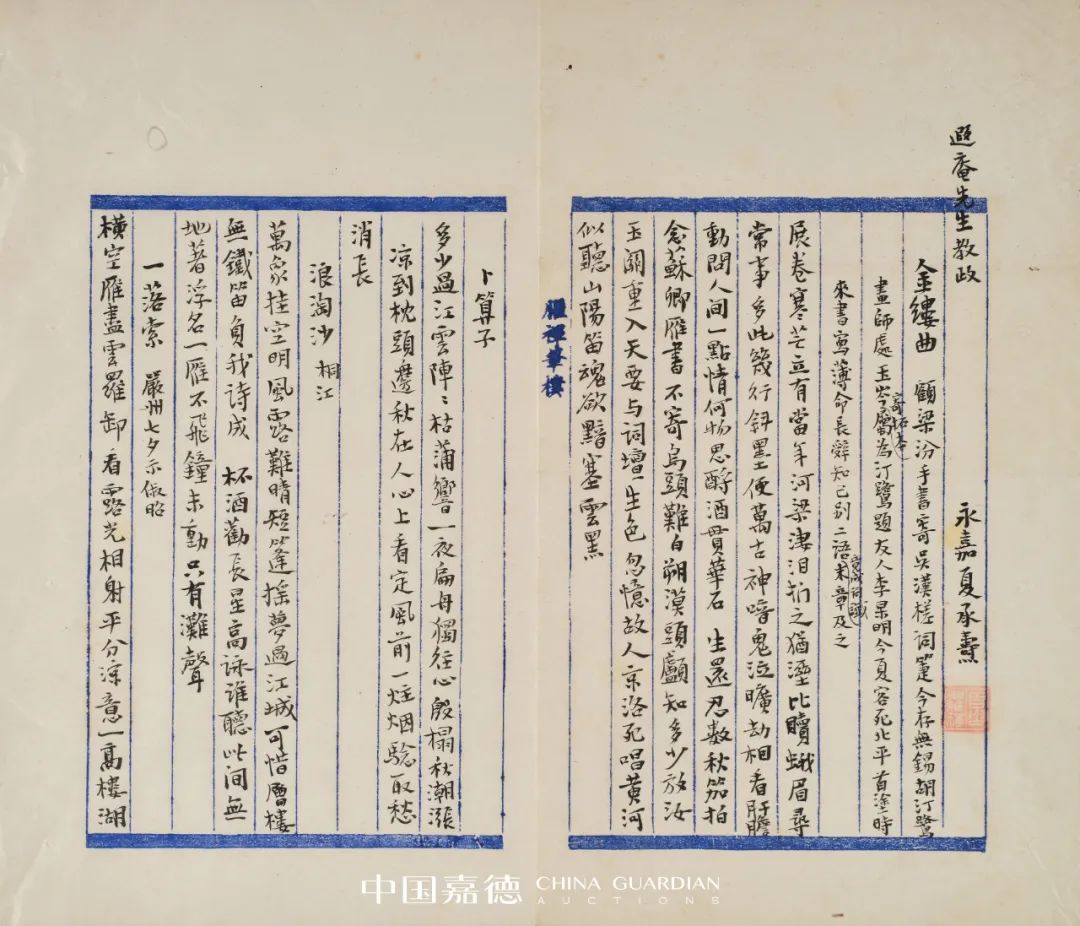 遐庵先生教政
永嘉夏承燾
金縷曲 顧梁汾手書寄吳漢槎詞箑今存無錫胡汀鷺
畫師處玉岑寄拓本屬為汀鷺題友人李杲明今夏客死北平首塗時
來書寫薄命長辭知己別二語竟成詞讖末章及之
展卷寒芒立有當年河梁淒淚捫之猶溼比贖蛾眉尋
常事多此幾行斜墨便萬古神喑鬼泣曠劫相看肝膽
動問人間一點情何物思酹酒貫華石 生還忍數秋笳拍
念蘇卿雁書不寄烏頭難白朔漠頭顱知多少放汝
玉關重入天要与詞壇生色忽憶故人京洛死唱黃河
似聽山陽笛魂欲黯塞雲黑
卜算子
多少過江雲陣〻枯蒲響一夜扁舟獨往心殷榻秋潮漲
涼到枕頭邊秋在人心上看定風前一炷烟驗取愁
消長
浪淘沙 桐江
萬象挂空明風露難晴短篷搖夢過江城可惜層樓
無鐵笛負我詩成 杯酒勸長星高詠誰聽此間無
地著浮名一雁不飛鐘未動只有灘聲
一落索 嚴州七夕示俶昭
橫空雁盡雲羅卸看露光相射平分涼意一高樓湖
中国嘉德 CHINA GUARDIAN
AUCTIONS